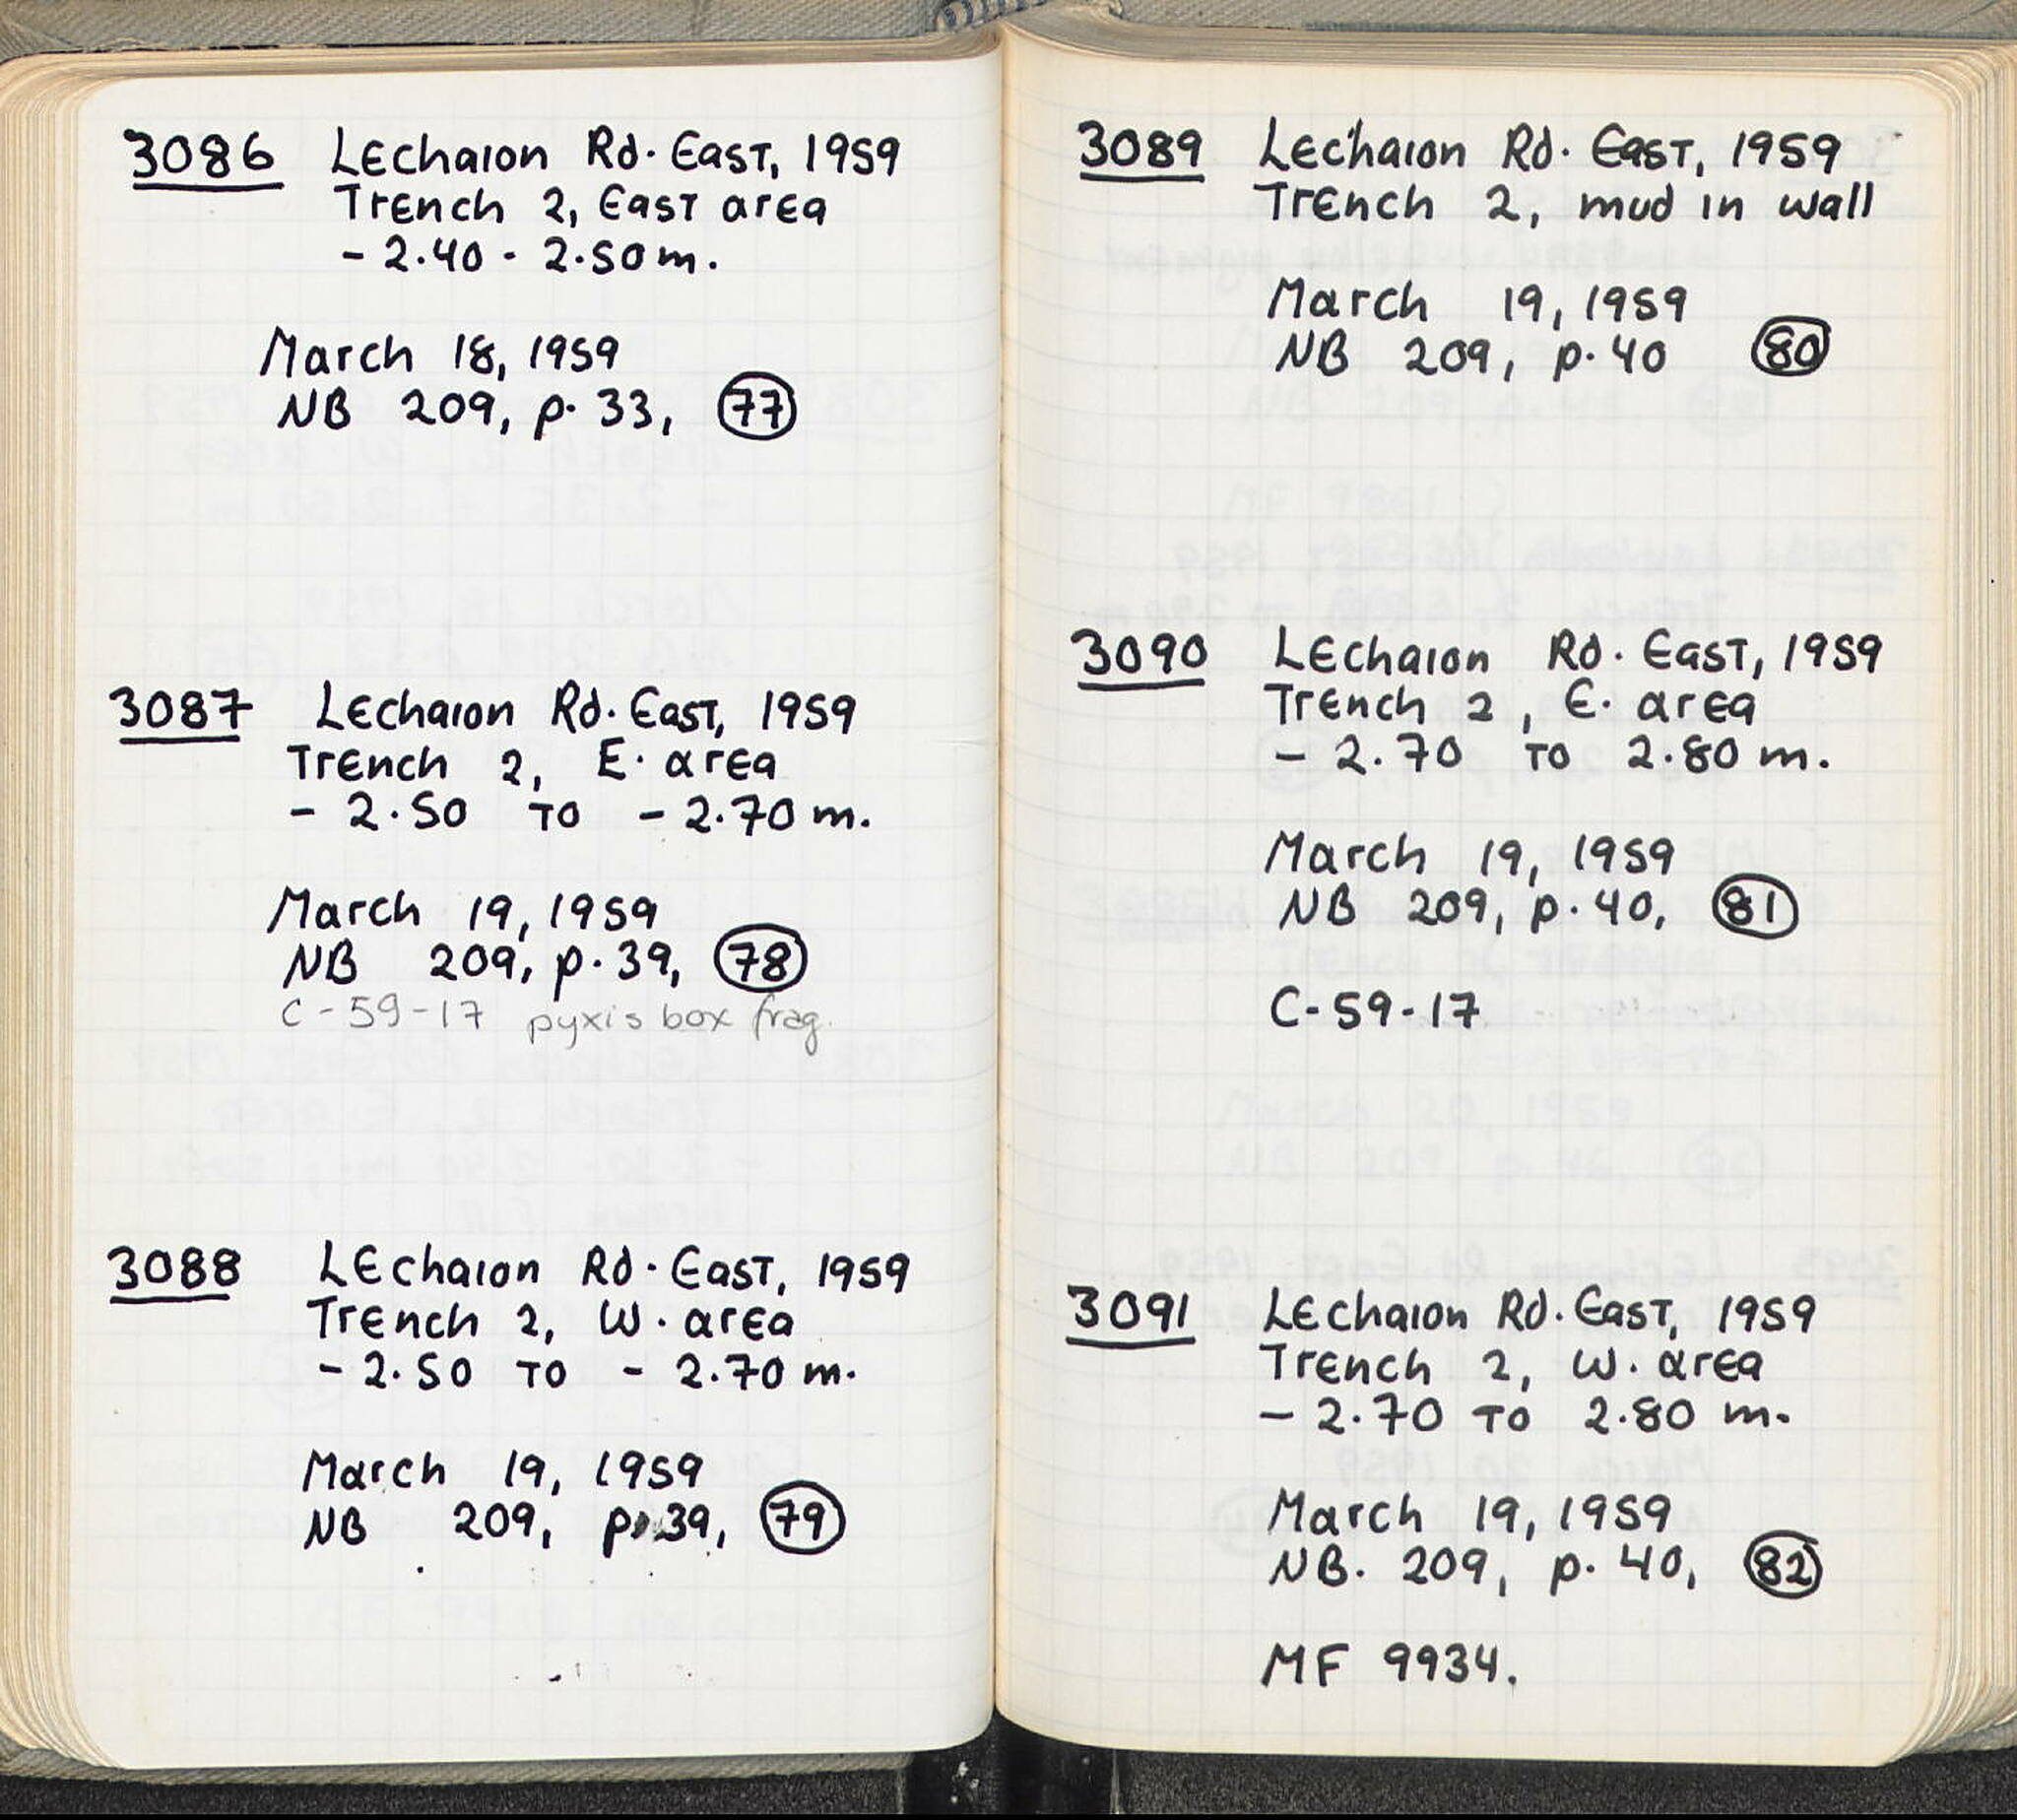 3086 Lechaion Rd. East, 1959
Trench 2, East area
- 2.40 - 2.50 m.
March 18, 1959
NB 209, p. 33, 77
3087 Lechaion Rd. East, 1959
Trench 2, E. area
- 2.50 TO - 2.70 m.
March 19, 1959
NB 209, p. 39, 78
C-59-17 pyxis box frag.
3088 Lechaion Rd. East, 1959
Trench 2, W. area
- 2.50 TO - 2.70 m.
March 19, 1959
NB 209, p. 39, 79
3089 Lechaion Rd. East, 1959
Trench 2, mud in wall
March 19, 1959
NB 209, p. 40 80
3090 Lechaion Rd. East, 1959
Trench 2, E. area
- 2.70 TO 2.80 m.
March 19, 1959
NB 209, p. 40, 81
C-59-17
3091 Lechaion Rd. East, 1959
Trench 2, W. area
- 2.70 TO 2.80 m.
March 19, 1959
NB. 209, p. 40, 82
MF 9934.